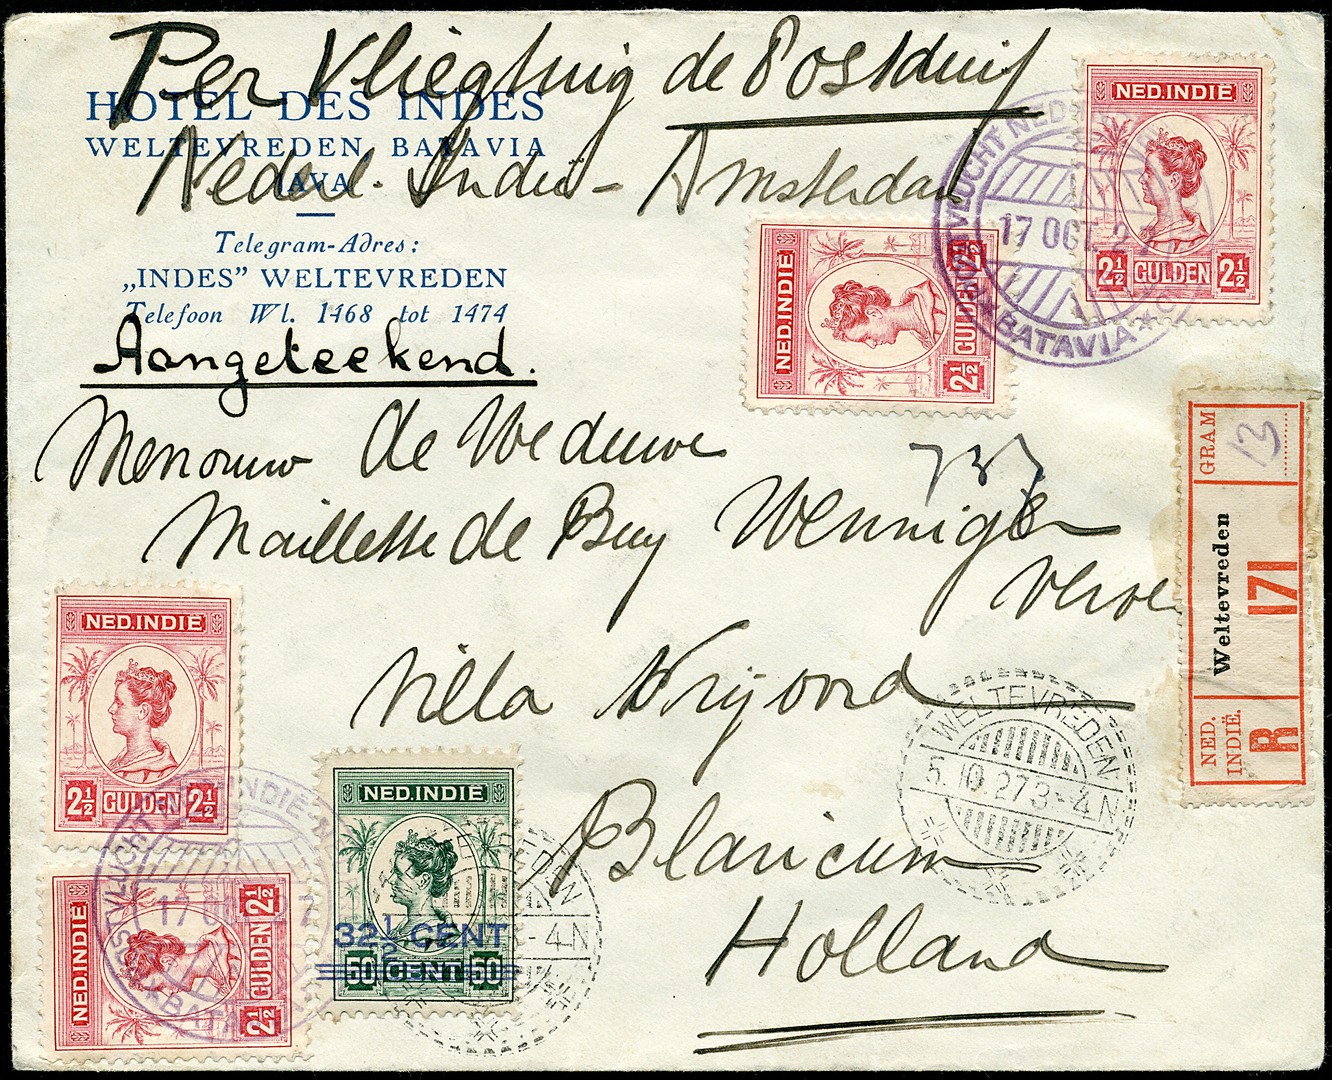 Per Vliegtuig de Postduif
HOTEL DES INDES
WELTEVREDEN, BATAVIA
JAVA
Nederl. Indië - Amsterdam
Telegram-Adres:
„INDES” WELTEVREDEN
Telefoon Wl. 1468 tot 1474
Aangeteekend.
Mevrouw de Weduwe
Maillette de Buy Wenniger
Villa Vrijoord
Blaricum
Holland
737
NED. INDIË
2½ GULDEN 2½
NED. INDIË
2½ GULDEN 2½
POSTVLUCHT NED
17 OCT. 2
BATAVIA
GRAM
13
Weltevreden
171
NED. INDIË.
R
WELTEVREDEN
5.10.27 3-4N
NED. INDIË
2½ GULDEN 2½
NED. INDIË
2½ GULDEN 2½
POSTVLUCHT NDIË
17 OC 27
BATA
NED. INDIË
32½ CENT
50 CENT 50
EDEN
-4N